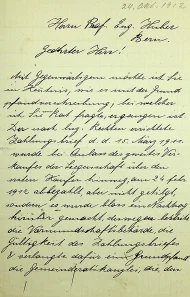 24. Okt. 1912
Herrn Prof. Eug. Huber
Bern
Geehrter Herr!
Mit Gegenwärtigem möchte ich Sie
in Kenntnis, wie es mit der Grund
pfandverschreibung, bei welcher
ich Sie um Rat fragte, ergangen ist.
Der nach Rechten errichtete
Zahlungsbrief d. d. 15. März 1911
wurde bei Anlass des zweiten Ver
kaufes der Liegenschaft über den
ersten Käufer hinweg, am 24. Feb
1912 abbezahlt, aber nicht getilgt,
sondern es wurde bloss ein Nachtrag
hinzu gemacht, deswegen
die Vormundschaftsbehörde die
Gültigkeit des Zahlungsbriefes
& verlangte dafür eine Grundpfand
die Gemeinderatskanzlei, die den